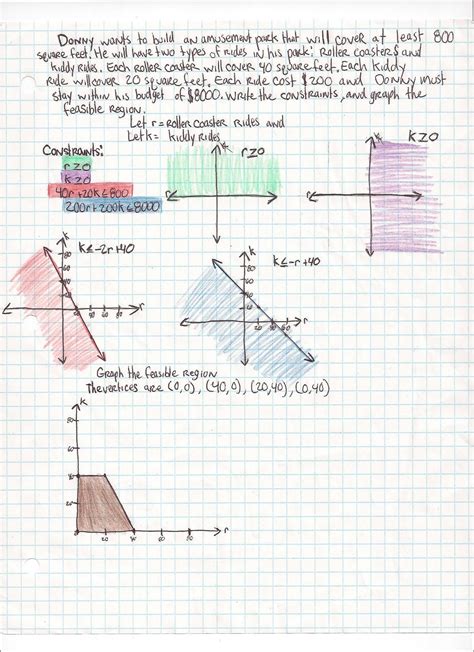 Donny wants to build an amusement park that will cover at least 800
square feet. He will have two types of rides in his park: Roller Coasters and
kiddy Rides. Each Roller coaster will cover 40 square feet. Each kiddy
ride will cover 20 square feet. Each Ride cost $200 and Donny must
stay within his budget of $8000. Write the constraints, and graph the
feasible region.
Let r = Roller Coaster Rides and
Let k = kiddy Rides
Constraints:
r≥0
k≥0
40r+20k≤800
200r+200k≤8000
k
r≥0
r
k
k≥0
r
k
k≤-2r+40
80
60
40
20
20 40 60 80
r
k
k≤-r+40
80
60
40
20
20 40 60 80
r
Graph the feasible Region
The vertices are (0,0), (40,0), (20,40), (0,40)
k
80
60
40
20
0 20 40 60 80
r